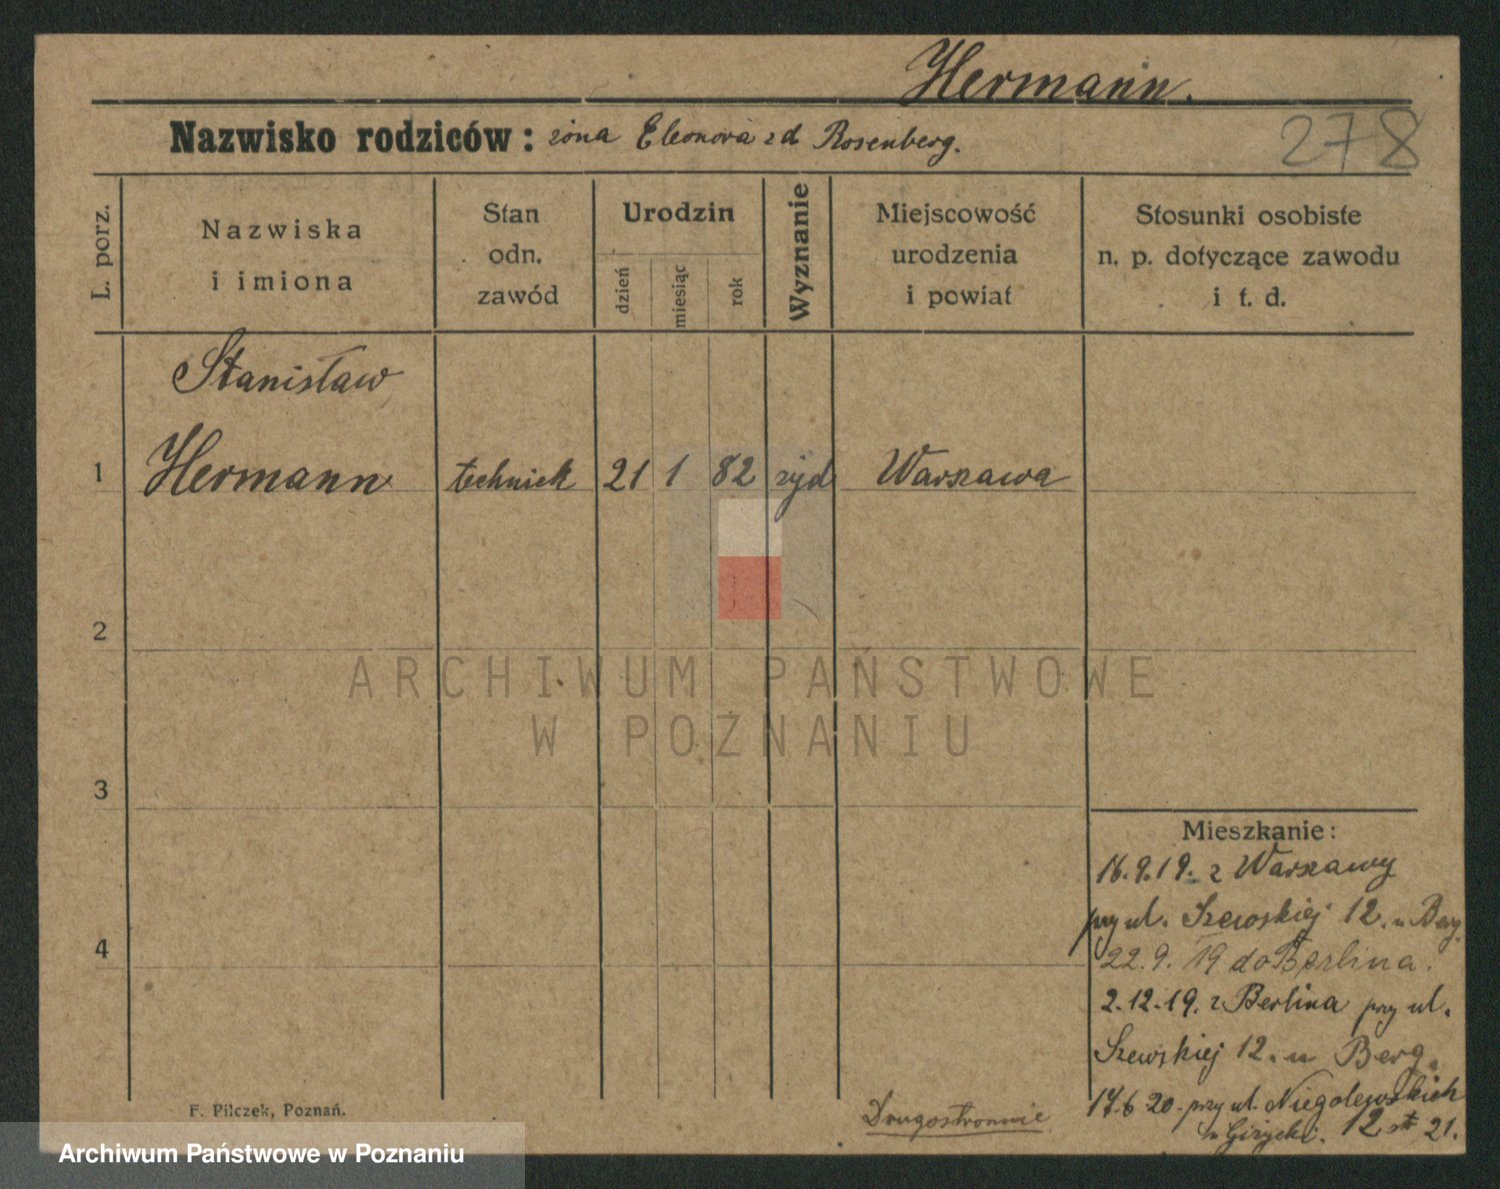 Hermann.
Nazwisko rodziców: żona Eleonora zd Rosenberg.
278
L. porz.
Nazwiska
i imiona
Stan
odn.
zawód
Urodzin
dzień
miesiąc
rok
Wyznanie
Miejscowość
urodzenia
i powiat
Stosunki osobiste
n. p. dotyczące zawodu
i t. d.
Stanisław
1 Hermann technick 21 1 82 żyd Warszawa
2
ARCHIWUM PAŃSTWOWE
W POZNANIU
3
Mieszkanie:
16.9.19. z Warszawy
przy ul. Szewskiej 12. u Berg.
4
22.9.19 do Berlina.
2.12.19. z Berlina przy ul.
Szewskiej 12. u Berg.
17.6 20. przy ul. Niegolewskich
12 21.
F. Pilczek, Poznań.
Drugostronnie
Archiwum Państwowe w Poznaniu